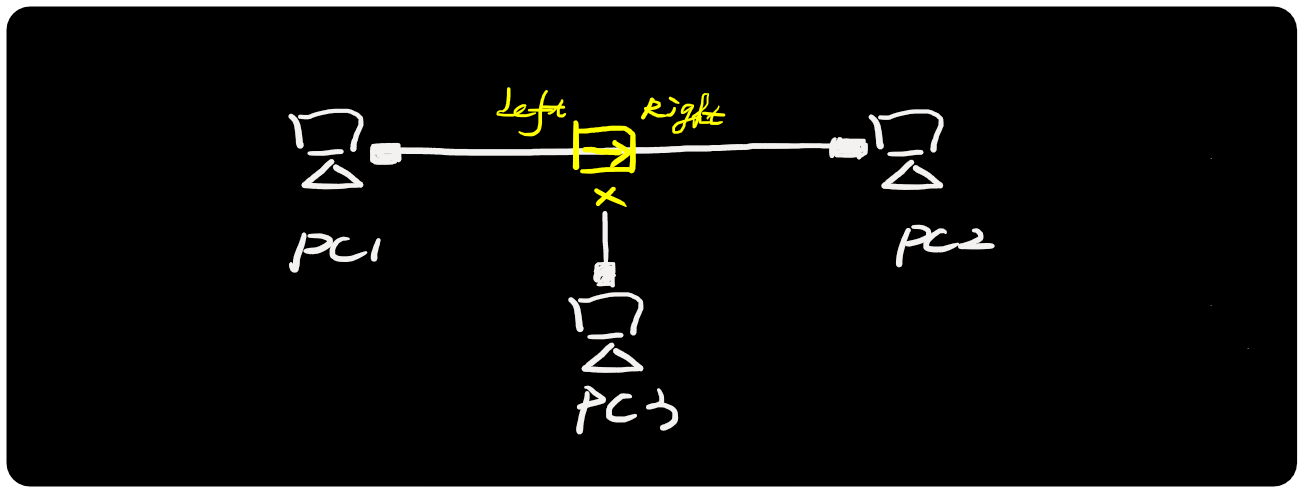 Left Right
X
PC1 PC2
PC3